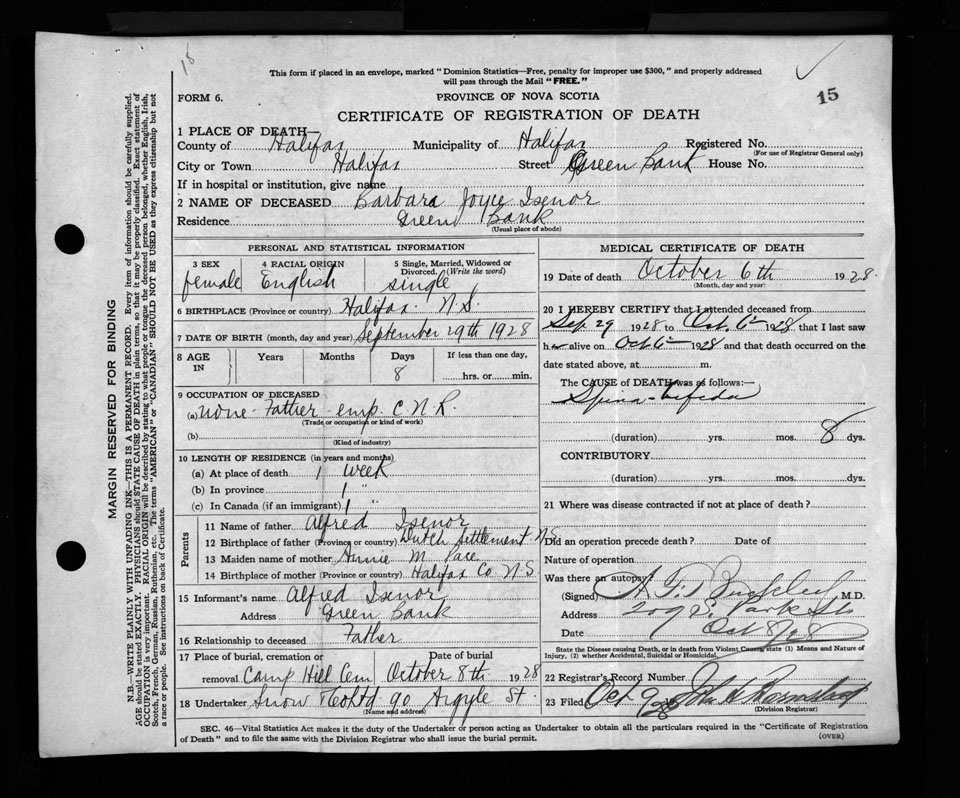 18
This form if placed in an envelope, marked "Dominion Statistics—Free, penalty for improper use $300," and properly addressed
will pass through the Mail "FREE."
15
FORM 6.
PROVINCE OF NOVA SCOTIA
CERTIFICATE OF REGISTRATION OF DEATH
MARGIN RESERVED FOR BINDING
N.B.—WRITE PLAINLY WITH UNFADING INK—THIS IS A PERMANENT RECORD. Every item of information should be carefully supplied.
AGE should be stated EXACTLY. PHYSICIANS should STATE CAUSE OF DEATH in plain terms, so that it may be properly classified. Exact statement of
OCCUPATION is very important. RACIAL ORIGIN will be described by stating to what people or tongue the deceased person belonged, whether English, Irish,
Scotch, French, German, Russian, Ruthenian, etc. The terms "AMERICAN" or "CANADIAN" SHOULD NOT BE USED as they express citizenship but not
a race or people. See instructions on back of Certificate.
1 PLACE OF DEATH—
County of Halifax Municipality of Halifax Registered No.
(For use of Registrar General only)
City or Town Halifax Street Green Bank House No.
If in hospital or institution, give name
2 NAME OF DECEASED Barbara Joyce Isenor
Residence Green Bank
(Usual place of abode)
PERSONAL AND STATISTICAL INFORMATION
3 SEX 4 RACIAL ORIGIN 5 Single, Married, Widowed or
Divorced. (Write the word)
female English single
6 BIRTHPLACE (Province or country) Halifax N.S.
7 DATE OF BIRTH (month, day and year) September 29th 1928
8 AGE IN Years Months Days If less than one day,
8 hrs. or min.
9 OCCUPATION OF DECEASED
(a) none - Father emp. C.N.R.
(Trade or occupation or kind of work)
(b)
(Kind of industry)
10 LENGTH OF RESIDENCE (in years and months)
(a) At place of death 1 week
(b) In province 1 "
(c) In Canada (if an immigrant) 1 "
Parents
11 Name of father Alfred Isenor
12 Birthplace of father (Province or country) Dutch Settlement N.S.
13 Maiden name of mother Annie M. Pace
14 Birthplace of mother (Province or country) Halifax Co. N.S.
15 Informant's name Alfred Isenor
Address Green Bank
16 Relationship to deceased Father
17 Place of burial, cremation or Date of burial
removal Camp Hill Cem October 8th 1928
18 Undertaker Snow & Co Ltd 90 Argyle St.
(Name and address)
MEDICAL CERTIFICATE OF DEATH
19 Date of death October 6th 1928.
(Month, day and year)
20 I HEREBY CERTIFY that I attended deceased from
Sep 29 1928 to Oct. 6th 1928 that I last saw
her alive on Oct 6th 1928 and that death occurred on the
date stated above, at m.
The CAUSE of DEATH was as follows:—
Spina-bifida
(duration) yrs. mos. 8 dys.
CONTRIBUTORY
(duration) yrs. mos. dys.
21 Where was disease contracted if not at place of death?
Did an operation precede death? Date of
Nature of operation
Was there an autopsy
(Signed) A. T. Buckley M.D.
Address 209 S. Park St.
Date Oct 8/28
State the Disease causing Death, or in death from Violent Causes, state (1) Means and Nature of
Injury, (2) whether Accidental, Suicidal or Homicidal.
22 Registrar's Record Number
23 Filed Oct 9 1928 John
(Division Registrar)
SEC. 46—Vital Statistics Act makes it the duty of the Undertaker or person acting as Undertaker to obtain all the particulars required in the "Certificate of Registration
of Death" and to file the same with the Division Registrar who shall issue the burial permit.
(OVER)